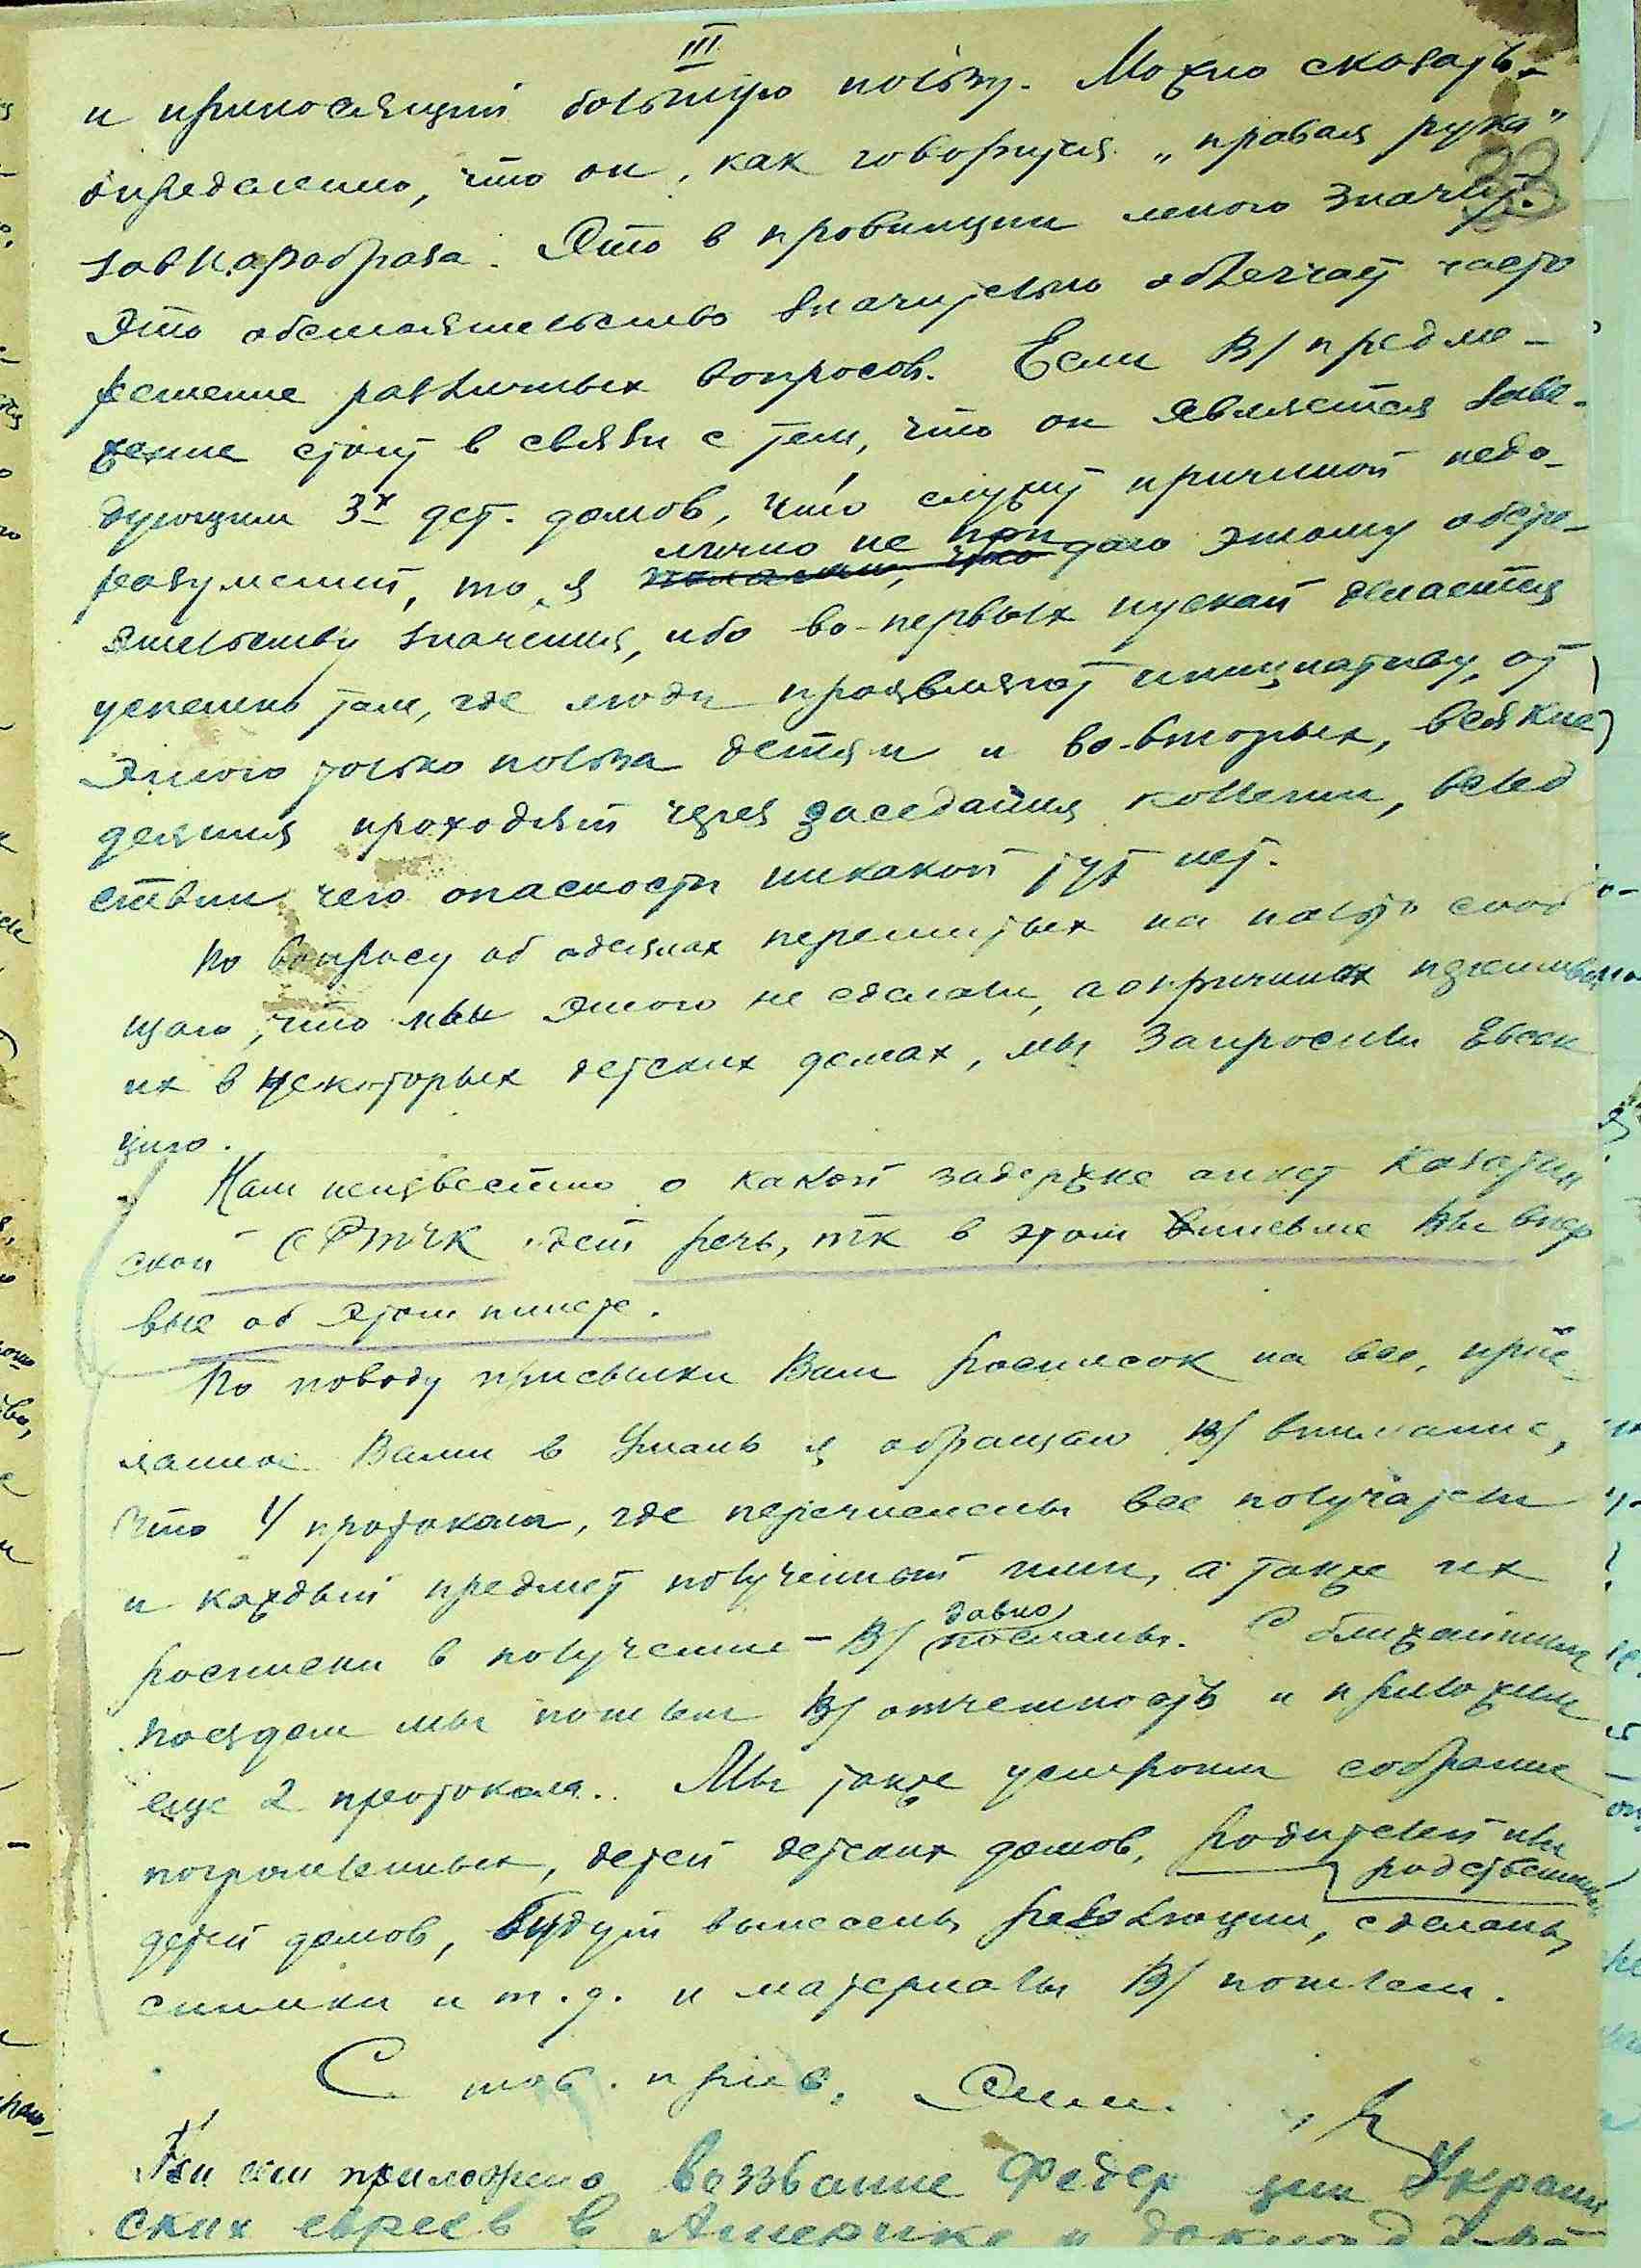 III
и приносящий большую пользу. Можно сказать
определенно, что он, как говорится „правая рука"
завнаробраза. Это в провинции много значит.
33
Это обстоятельство значительно облегчает часто
решение различных вопросов. Если В/ предло-
жение стоит в связи с тем, что он является заве-
дующим 3х дет. домов, что служит причиной недо-
разумений, то я лично не придаю этому обсто-
ятельству значения, ибо во-первых пускай делается
успешно там, где люди проявляют инициативу, от
этого только польза детям и во-вторых, всякие
деяния проходят через заседания коллегии, вслед
ствии чего опасности никакой тут нет.
По вопросу об одеялах перешитых на пальто сооб-
щаю, что мы этого не сделали, а о причинах
их в некоторых детских домах, мы запросили Евсек
цию.
Нам неизвестно о какой задержке анкет
ской с РТЧК идет речь, тк в этом письме Вы впер
вые об этом пишете.
По поводу присылки Вам расписок на все, прис-
ланное Вами в Умань я обращаю В/ внимание,
что 4 протокола, где перечислены все получатели
и каждый предмет полученный ими, а также их
расписки в получение - В/ давно посланы. С ближайшим
поездом мы пошлем В/ отчетность и приложим
еще 2 протокола. Мы также устроим собрание
погромленных, детей детских домов, родителей или
родственников
детей домов, будут вынесены резолюции, сделаны
снимки и т.д. и материалы В/ пошлем.
С тов. прив.
При сем приложено воззвание Федерации Украин
ских евреев в Америке и доклад